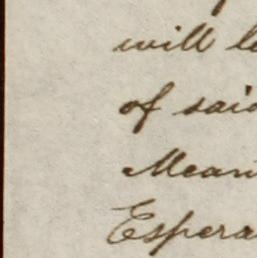 will le
of said
Mean
Espera